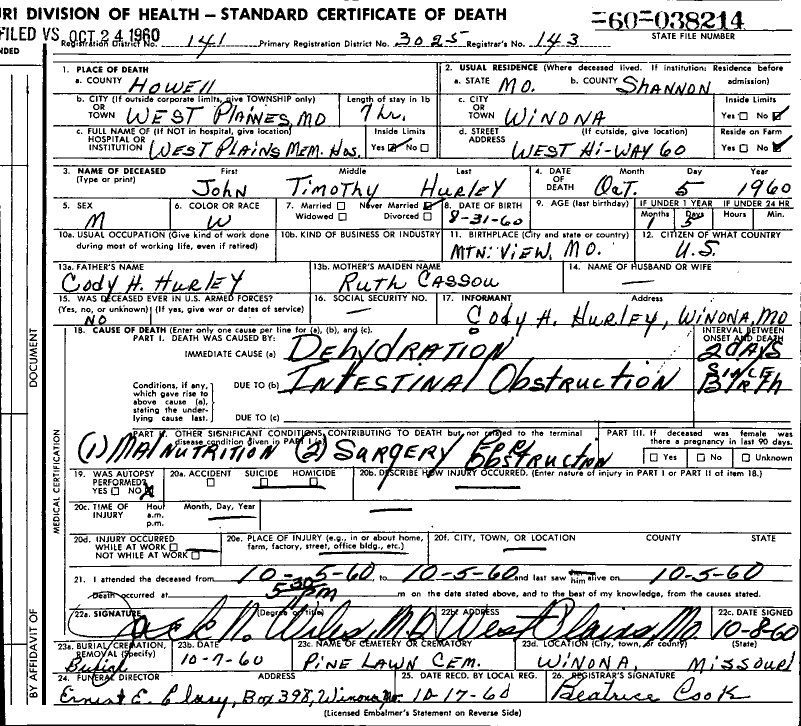 URI DIVISION OF HEALTH — STANDARD CERTIFICATE OF DEATH
=60=038214
STATE FILE NUMBER
FILED VS. OCT 24 1960
Registration District No. 141 Primary Registration District No. 3025 Registrar's No. 143
NDED
1. PLACE OF DEATH
a. COUNTY HOWELL
2. USUAL RESIDENCE (Where deceased lived. If institution: Residence before admission)
a. STATE MO. b. COUNTY SHANNON
b. CITY (If outside corporate limits, give TOWNSHIP only) OR TOWN WEST PLAINES, MO
Length of stay in 1b 7 hr.
c. CITY OR TOWN WINONA
Inside Limits Yes No
c. FULL NAME OF (If NOT in hospital, give location) HOSPITAL OR INSTITUTION WEST PLAINS MEM. HOS.
Inside Limits Yes No
d. STREET ADDRESS (If outside, give location) WEST HI-WAY 60
Reside on Farm Yes No
3. NAME OF DECEASED (Type or print) First Middle Last
JOHN TIMOTHY HURLEY
4. DATE OF DEATH Month Day Year
OCT. 5 1960
5. SEX M
6. COLOR OR RACE W
7. Married Never Married Widowed Divorced
8. DATE OF BIRTH 8-31-60
9. AGE (last birthday) IF UNDER 1 YEAR IF UNDER 24 HR
Months Days Hours Min.
1 5
10a. USUAL OCCUPATION (Give kind of work done during most of working life, even if retired)
10b. KIND OF BUSINESS OR INDUSTRY
11. BIRTHPLACE (City and state or country) MTN. VIEW, MO.
12. CITIZEN OF WHAT COUNTRY U.S.
13a. FATHER'S NAME Cody H. HURLEY
13b. MOTHER'S MAIDEN NAME RUTH CASSOU
14. NAME OF HUSBAND OR WIFE —
15. WAS DECEASED EVER IN U.S. ARMED FORCES? (Yes, no, or unknown) (If yes, give war or dates of service) NO
16. SOCIAL SECURITY NO. —
17. INFORMANT Address
Cody H. HURLEY, WINONA, MO
18. CAUSE OF DEATH (Enter only one cause per line for (a), (b), and (c).
PART I. DEATH WAS CAUSED BY:
INTERVAL BETWEEN ONSET AND DEATH
IMMEDIATE CAUSE (a) DEHYDRATION 2 DAYS
Conditions, if any, which gave rise to above cause (a), stating the underlying cause last.
DUE TO (b) INTESTINAL OBSTRUCTION SINCE BIRTH
DUE TO (c)
PART II. OTHER SIGNIFICANT CONDITIONS CONTRIBUTING TO DEATH but not related to the terminal disease condition given in PART I (a)
(1) MALNUTRITION (2) SURGERY FOR OBSTRUCTION
PART III. If deceased was female was there a pregnancy in last 90 days.
Yes No Unknown
19. WAS AUTOPSY PERFORMED? YES NO
20a. ACCIDENT SUICIDE HOMICIDE
20b. DESCRIBE HOW INJURY OCCURRED. (Enter nature of injury in PART I or PART II of item 18.)
20c. TIME OF INJURY Hour a.m. p.m. Month, Day, Year
20d. INJURY OCCURRED WHILE AT WORK NOT WHILE AT WORK
20e. PLACE OF INJURY (e.g., in or about home, farm, factory, street, office bldg., etc.)
20f. CITY, TOWN, OR LOCATION COUNTY STATE
21. I attended the deceased from 10-5-60 to 10-5-60 and last saw him alive on 10-5-60
Death occurred at 5 30 PM m on the date stated above, and to the best of my knowledge, from the causes stated.
22a. SIGNATURE (Degree or title) Jack N. Wiles, M.D.
22b. ADDRESS West Plains, Mo.
22c. DATE SIGNED 10-8-60
23a. BURIAL, CREMATION, REMOVAL (Specify) Burial
23b. DATE 10-7-60
23c. NAME OF CEMETERY OR CREMATORY PINE LAWN CEM.
23d. LOCATION (City, town, or county) (State) WINONA, MISSOURI
24. FUNERAL DIRECTOR ADDRESS
Ernest E. Clary, Box 398, Winona Mo.
25. DATE RECD. BY LOCAL REG. 10-17-60
26. REGISTRAR'S SIGNATURE Beatrice Cook
(Licensed Embalmer's Statement on Reverse Side)
DOCUMENT
MEDICAL CERTIFICATION
BY AFFIDAVIT OF